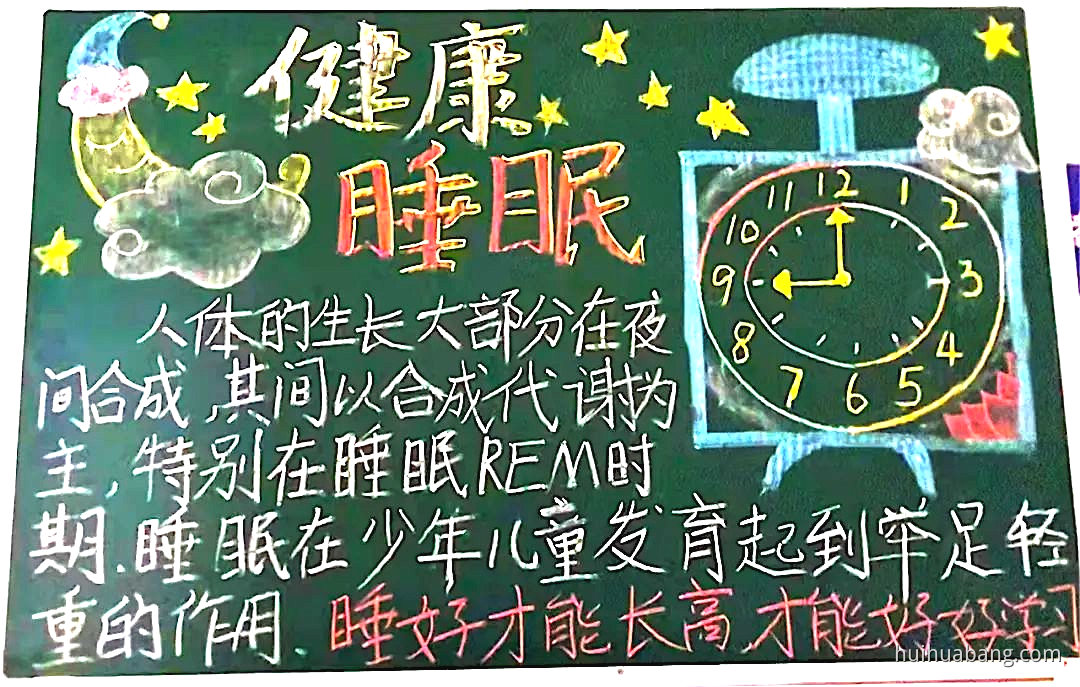 健康
睡眠
人体的生长大部分在夜
间合成,其间以合成代谢为
主,特别在睡眠REM时
期.睡眠在少年儿童发育起到举足轻
重的作用.睡好才能长高,才能好好学习
12
1
2
3
4
5
6
7
8
9
10
11
huihuabang.com